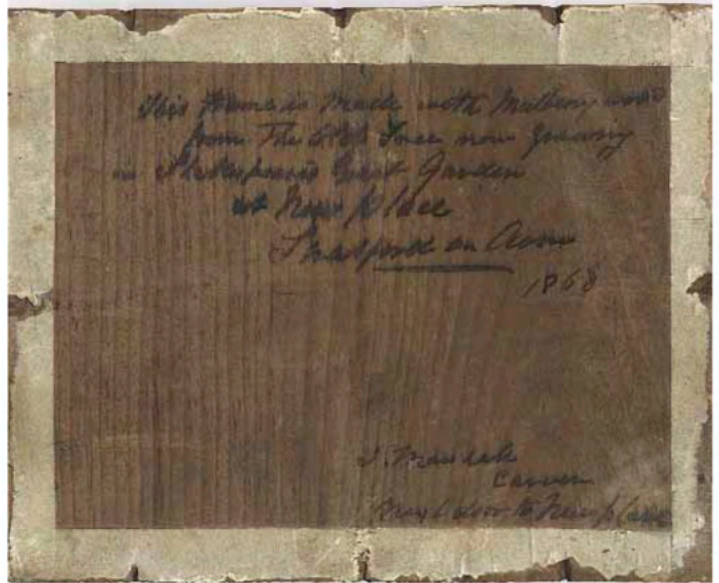 This Frame is Made with Mulberry wood
from The Old Tree now growing
in Shakspeares Great Garden
at New place
Stratford on Avon
1868
Carver
Next door to New place